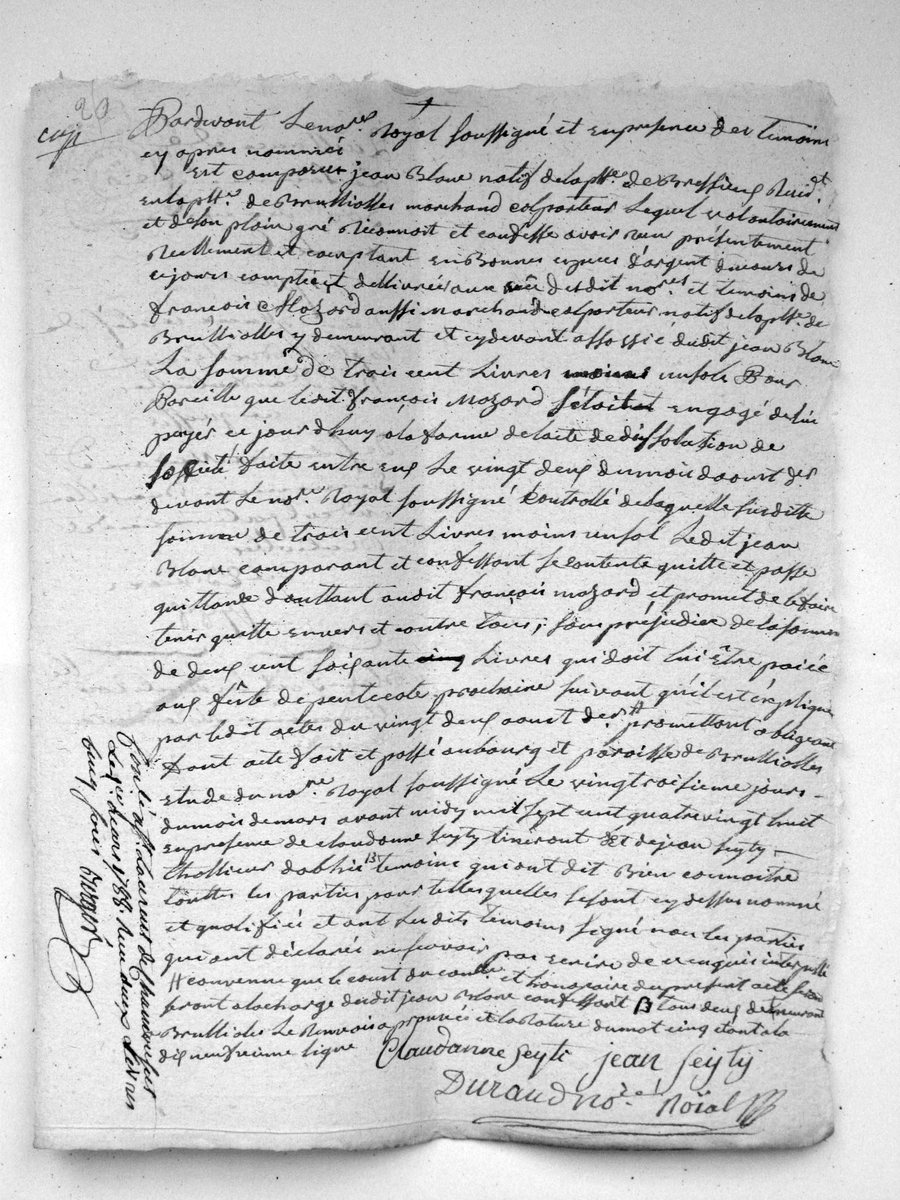 20
copt
Pardevant Le no.re Royal soussigné et en presence des temoins
cy apres nommés
Est comparu jean Blanc natif de la p.sse de Bressieux Resid.t
en la p.sse de Brullioles marchand colporteur Lequel volontairement
et de son plain gré Reconnoit et confesse avoir Reu présentement
Reellement et comptant en Bonnes espaces d'argent du cours de
ce jours comptée et dellivrée aux vüe desdit no.res et temoins de
françois Mozard aussi marchand colporteur natif de la p.sse de
Brullioles y demeurant et cy devant assossié dudit jean Blanc
La somme de trois cent Livres moins un sol Pour
Pareille que ledit françois Mozard s'étoit engagé de lui
payer ce jourdhuy a la forme de l'acte de dissolution de
sossiété faite entre eux Le vingt deux du mois d'aoust der
devant Le no.re Royal soussigné Controllé de laquelle susditte
somme de trois cent Livres moins un sol Ledit jean
Blanc comparant et confessant se contente quitte et passe
quittance d'auttant audit françois mozard et promet de le faire
tenir quitte envers et contre tous; sans préjudice de la somme
de deux cent soixante cinq Livres qui doit lui être paiée
aux fête de pentecote prochaine suivant qu'il est expliqué
par ledit actes du vingt deux aoust der # promettant obligeant
Dont acte Fait et passé au bourg et paroisse de Brullioles
Etude du no.re Royal soussigné Le vingtroisieme jours
du mois de mars avant midy mil sept cent quatre vingt huit
en presence de claudanne seyty tinéront Et de jean seyty
thollieur d'ablis B temoins qui ont dit Bien connoitre
touttes les parties pour telles quelles se sont cy dessus nommé
et qualifiée et ont Lesdits temoins signé non les parties
qui ont déclarés ne scavoir par ecrire de ce enquis interpellé
# convenue que le coust du contrôle et honoraire du present acte seron
seront a la charge dudit jean Blanc confessant B tous deux demeurant
Brullioles Le Renvois aprouvée et la Rature du mot cinq etant a la
dix neufvieme ligne
Claudanne Seyti jean Seyty
Durand no.re Roïal
Con.lé a St Laurent de Chamousset
Le 30 mars 1788. Reçu deux Livres